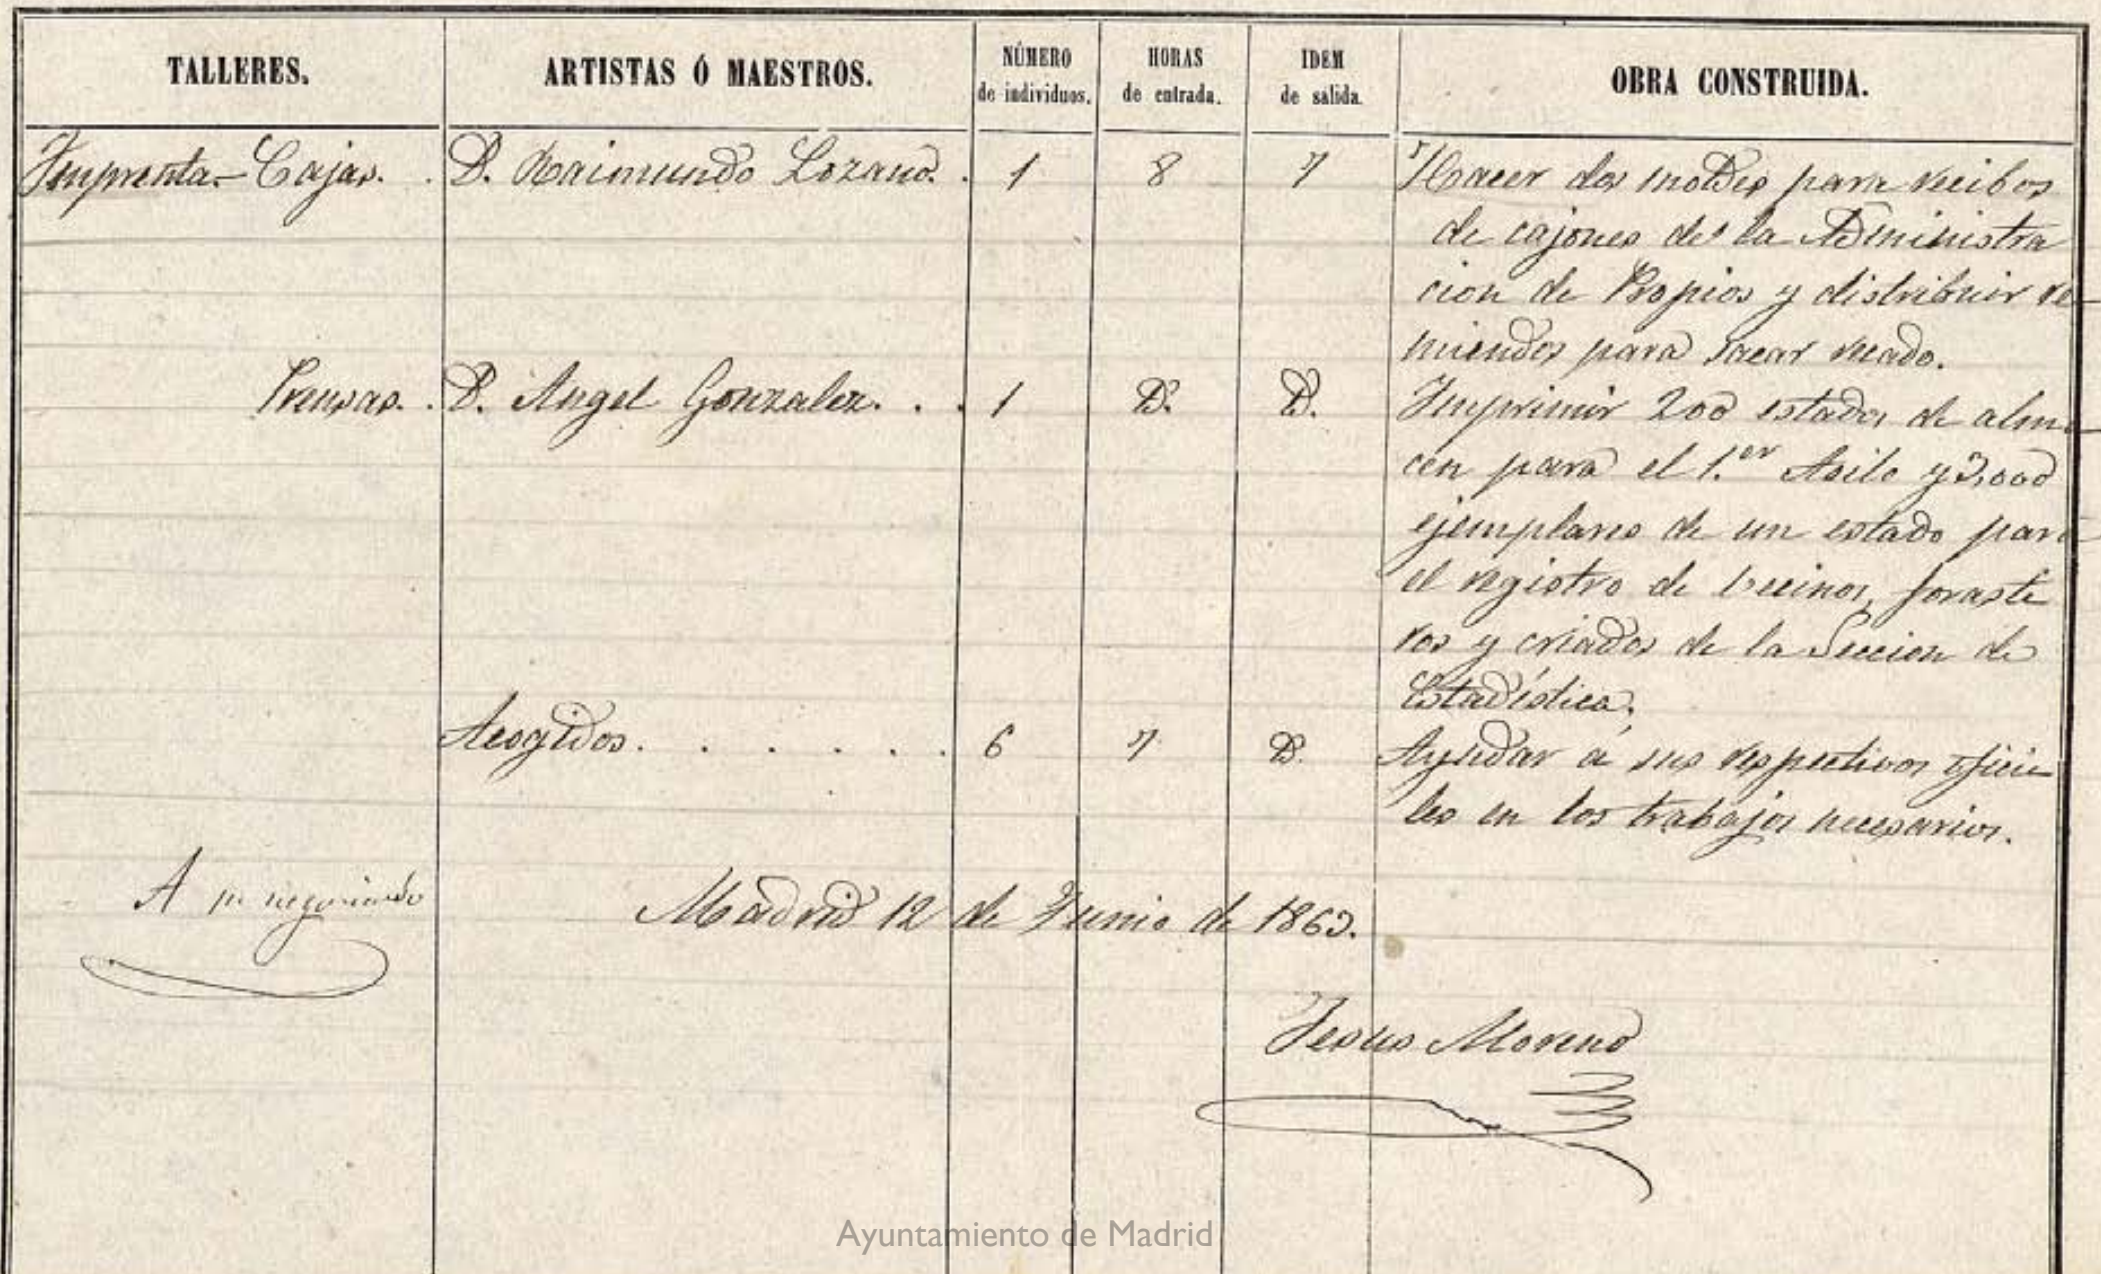 TALLERES. ARTISTAS Ó MAESTROS. NÚMERO de individuos. HORAS de entrada. IDEM de salida. OBRA CONSTRUIDA.
Imprenta.- Cajas. . D. Raimundo Lozano. . 1 8 7 Hacer dos moldes para recibos
de cajones de la Administra
cion de Propios y distribuir re-
miendos para sacar recado.
Prensas. . D. Angel Gonzalez. . . 1 D. D. Imprimir 200 estados de alma-
cen para el 1.er Asilo y 3,000
ejemplares de un estado para
el registro de vecinos, foraste
ros y criados de la Seccion de
Estadística.
Acogidos. . . . . . . 6 7 D. Ayudar á sus respectivos oficia
les en los trabajos necesarios.
A su negociado
Madrid 12 de Junio de 1863.
Jesus Moreno
Ayuntamiento de Madrid